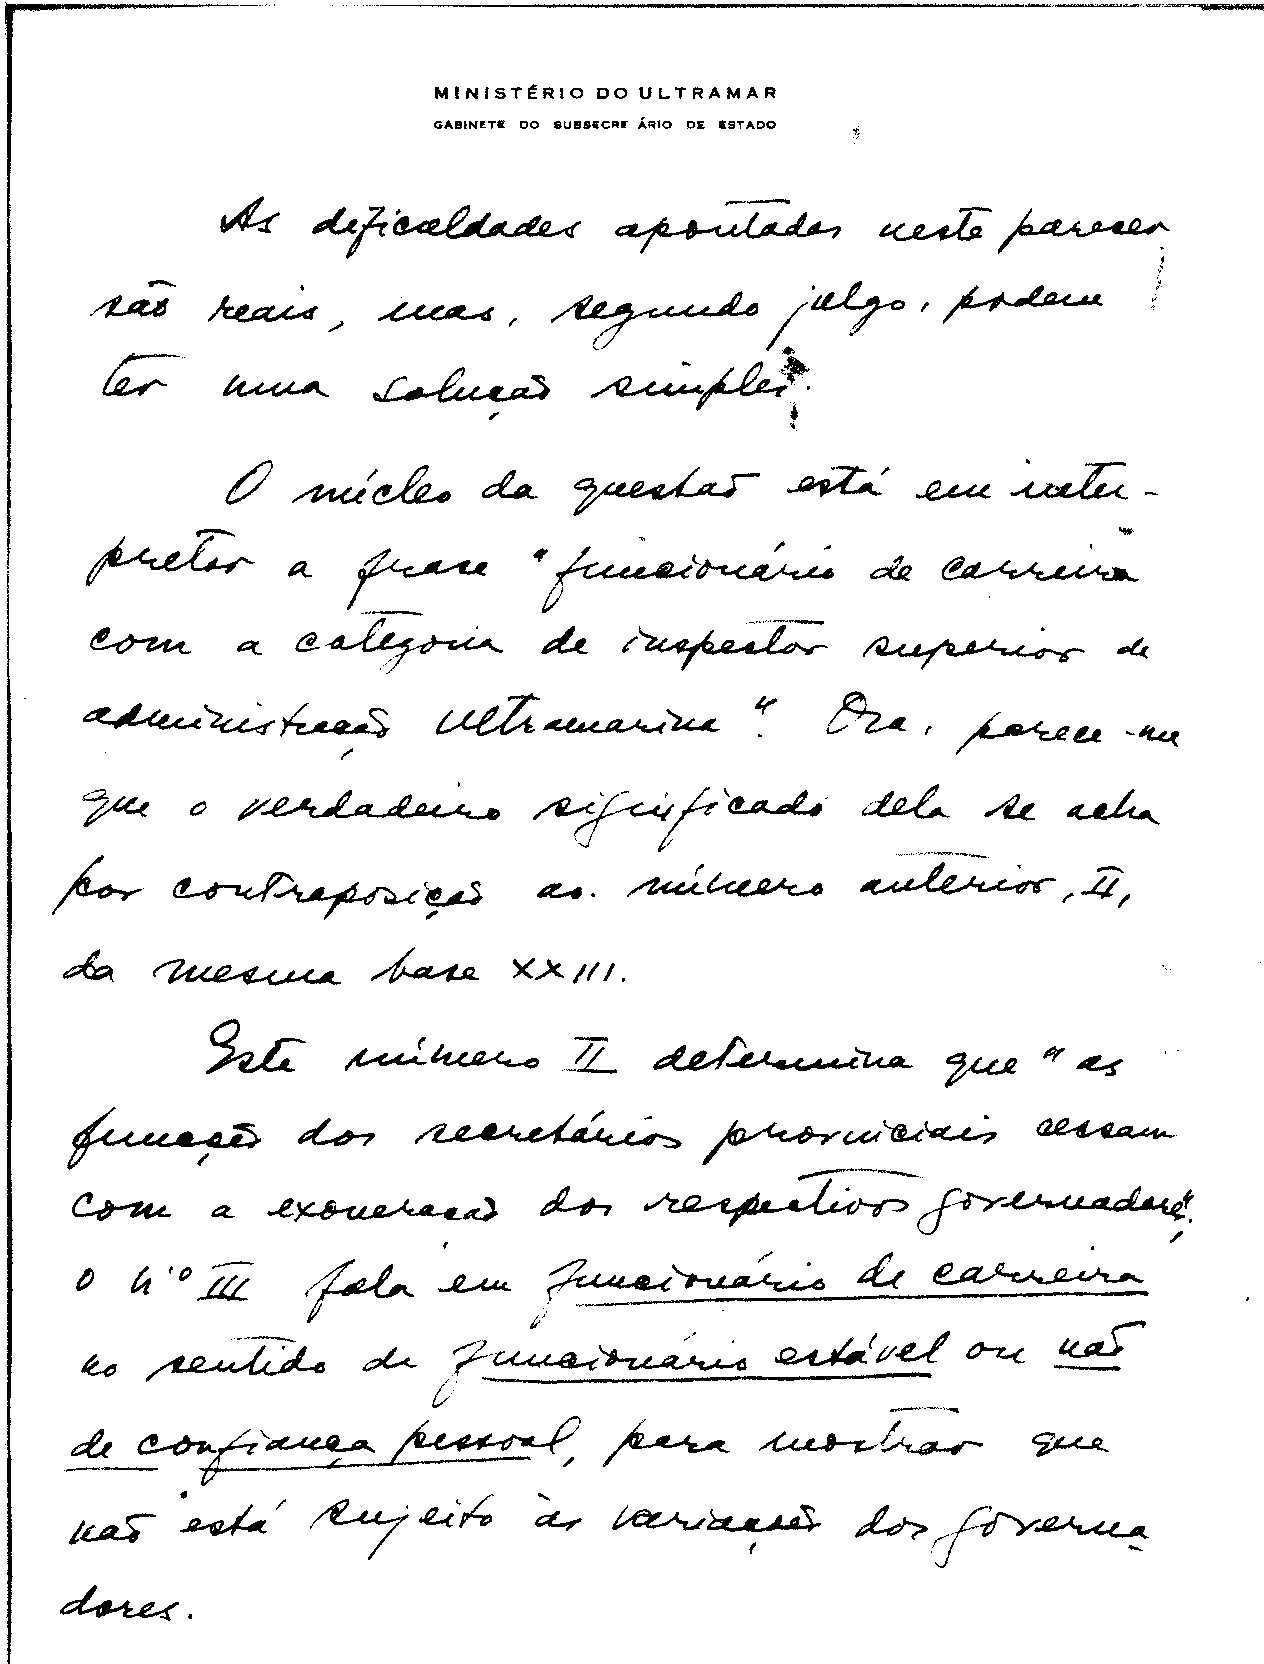 MINISTÉRIO DO ULTRAMAR
GABINETE DO SUBSECRE ÁRIO DE ESTADO
As dificuldades apontadas neste parecer
são reais, mas, segundo julgo, podem
ter uma solução simples.
O núcleo da questão está em inter-
pretar a frase "funcionário de carreira
com a categoria de inspector superior de
administração ultramarina". Ora, parece-me
que o verdadeiro significado dela se acha
por contraposição ao número anterior, II,
da mesma base XXIII.
Este número II determina que "as
funções dos secretários provinciais cessam
com a exoneração dos respectivos governadores";
o nº III fala em funcionário de carreira
no sentido de funcionário estável ou não
de confiança pessoal, para mostrar que
não está sujeito às variações dos governa-
dores.